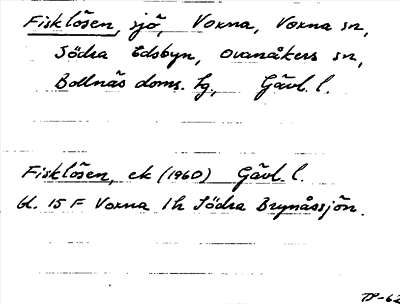 Fisklösen, sjö, Voxna, Voxna sn,
Södra Edsbyn, Ovanåkers sn,
Bollnäs doms. hg, Gävl. l.
Fisklösen, ek (1960) Gävl. l.
bl. 15 F Voxna 1 h Södra Brynåssjön.
TP-62